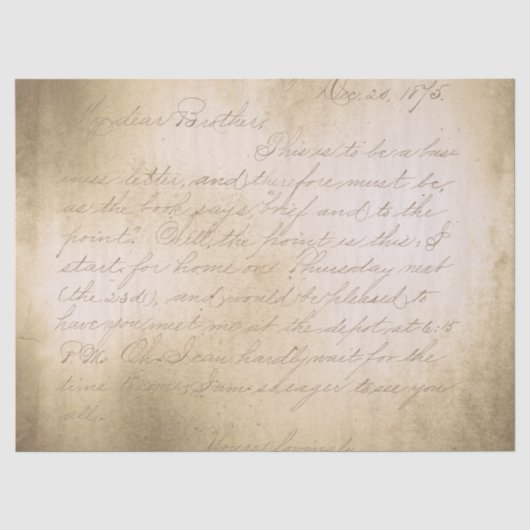 Dec. 20, 1875.
My dear Brother,
This is to be a busi
ness letter, and therefore must be,
as the book says, "brief and to the
point". Well, the point is this: I
start for home on Thursday next
(the 23d), and would be pleased to
have you meet me at the depot at 6:15
P.M. Oh. I can hardly wait for the
time to come, I am so eager to see you
all.
Yours lovingly